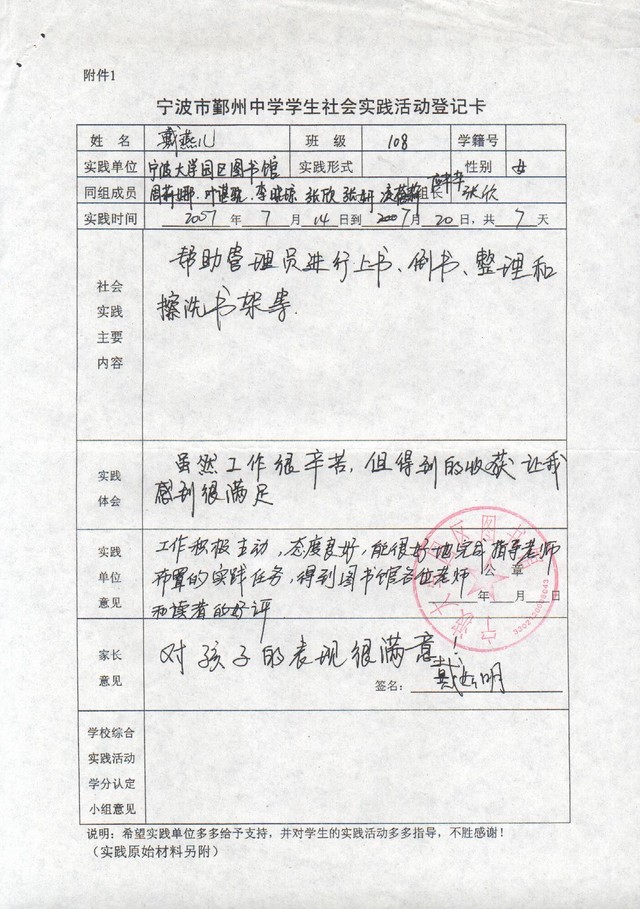 附件1
宁波市鄞州中学学生社会实践活动登记卡
姓 名 戴燕儿 班 级 108 学籍号
实践单位 宁波大学园区图书馆 实践形式 性别 女
同组成员 周莉娜、叶 李 张欣 张妍 组长 张欣
实践时间 2007 年 7 月 14 日到 2007 7 月 20 日，共 7 天
社会
实践
主要
内容
帮助管理员进行上书、倒书、整理和
擦洗书架等.
实践
体会
虽然工作很辛苦，但得到的收获让我
感到很满足
实践
单位
意见
工作积极主动，态度良好，能很好地完成指导老师
布置的实践任务，得到图书馆各位老师
和读者的好评
公 章
年 月 日
家长
意见
对孩子的表现很满意！
签名：戴 明
学校综合
实践活动
学分认定
小组意见
说明：希望实践单位多多给予支持，并对学生的实践活动多多指导，不胜感谢！
（实践原始材料另附）